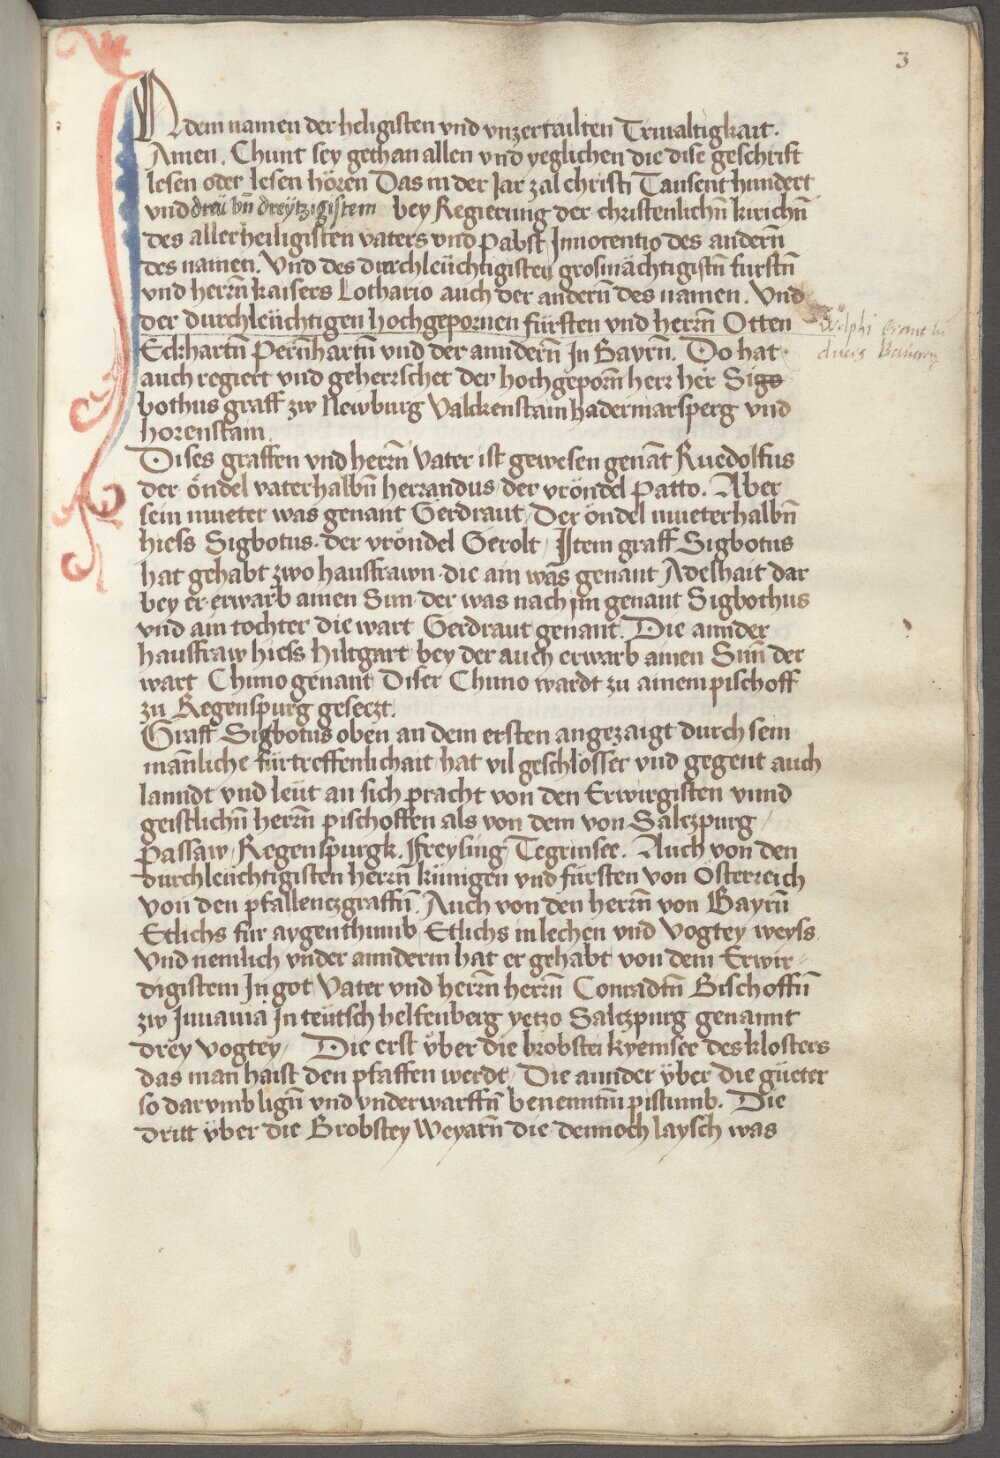 3
IN dem namen der heligisten vnd vnzertailten Triualtigkait.
Amen. Chunt sey gethan allen vnd yeglichen die dise geschrift
lesen oder lesen hören Das in der Jar zal christi Tausent hundert
vnd dreü vn̄ dreÿtzigistem bey Regierung der christenlichn̄ kirichn̄
des allerheiligisten vaters vnd Pabst Innocentio des andern̄
des namen. Vnd des durchleüchtigisten grosmächtigistn̄ furstn̄
vnd herrn̄ kaisers Lothario auch der andern̄ des namen. Vnd
der durchleüchtigen hochgepornen fürsten vnd herrn̄ Otten
Eckhartn̄ Pern̄hartn̄ vnd der anndern̄ In Bayrn̄. Do hat
auch regiert vnd geherrschet der hochgeporn̄ herr her Sigo
bothus graff zw Newburg Valckenstain hadermarsperg vnd
horenstain
Dises graffen vnd herrn̄ Vater ist gewesen genāt Ruedolfus
der öndel vaterhalbn̄ herrandus der vröndel Patto. Aber
sein mueter was genant Gerdraut, Der öndel mueterhalbn̄
hiess Sigbotus. der vröndel Gerolt, Item graff Sigbotus
hat gehabt zwo hausfrawn. die ain was genant Adelhait dar
bey er erwarb ainen Sun der was nach im genant Sigbothus
vnd ain tochter die wart Gerdraut genant. Die annder
hausfraw hiess hiltgart bey der auch erwarb ainen Sun̄ der
wart Chuno genant Diser Chuno wardt zu ainem pischoff
zu Regenspurg geseczt.
Graff Sigbotus oben an dem ersten angezaigt durch sein
man̄liche fürtreffenlichait hat vil geschlösser vnd gegent auch
lanndt vnd leüt an sich pracht von den Erwirgisten vnnd
geistlichn̄ herrn̄ pischoffen als von dem von Salczpurg /
Passaw, Regenspurgk. Freysing Tegrinsee. Auch von den
durchleüchtigisten herrn̄ künigen vnd fürsten von Osterreich
von den pfallenczgraffn̄. Auch von den herrn̄ von Bayrn̄
Etlichs für aygenthumb Etlichs in lechen vnd Vogtey weyss
Vnd nemlich vnder annderm hat er gehabt von dem Erwir-
digistem In got Vater vnd herrn̄ herrn̄ Conradtn̄ Bischoffn̄
zw Iuuauia In teütsch helfenberg yetzo Salczpurg genannt
drey vogtey, Die erst über die brobstei kyemsee des klosters
das man haist den pfaffen werdt, Die annder über die güeter
so darumb lign̄ vnd vnderwarffn̄ benenntm̄ pistumb. Die
dritt über die Brobstey Weyarn̄ die dennoch laysch was